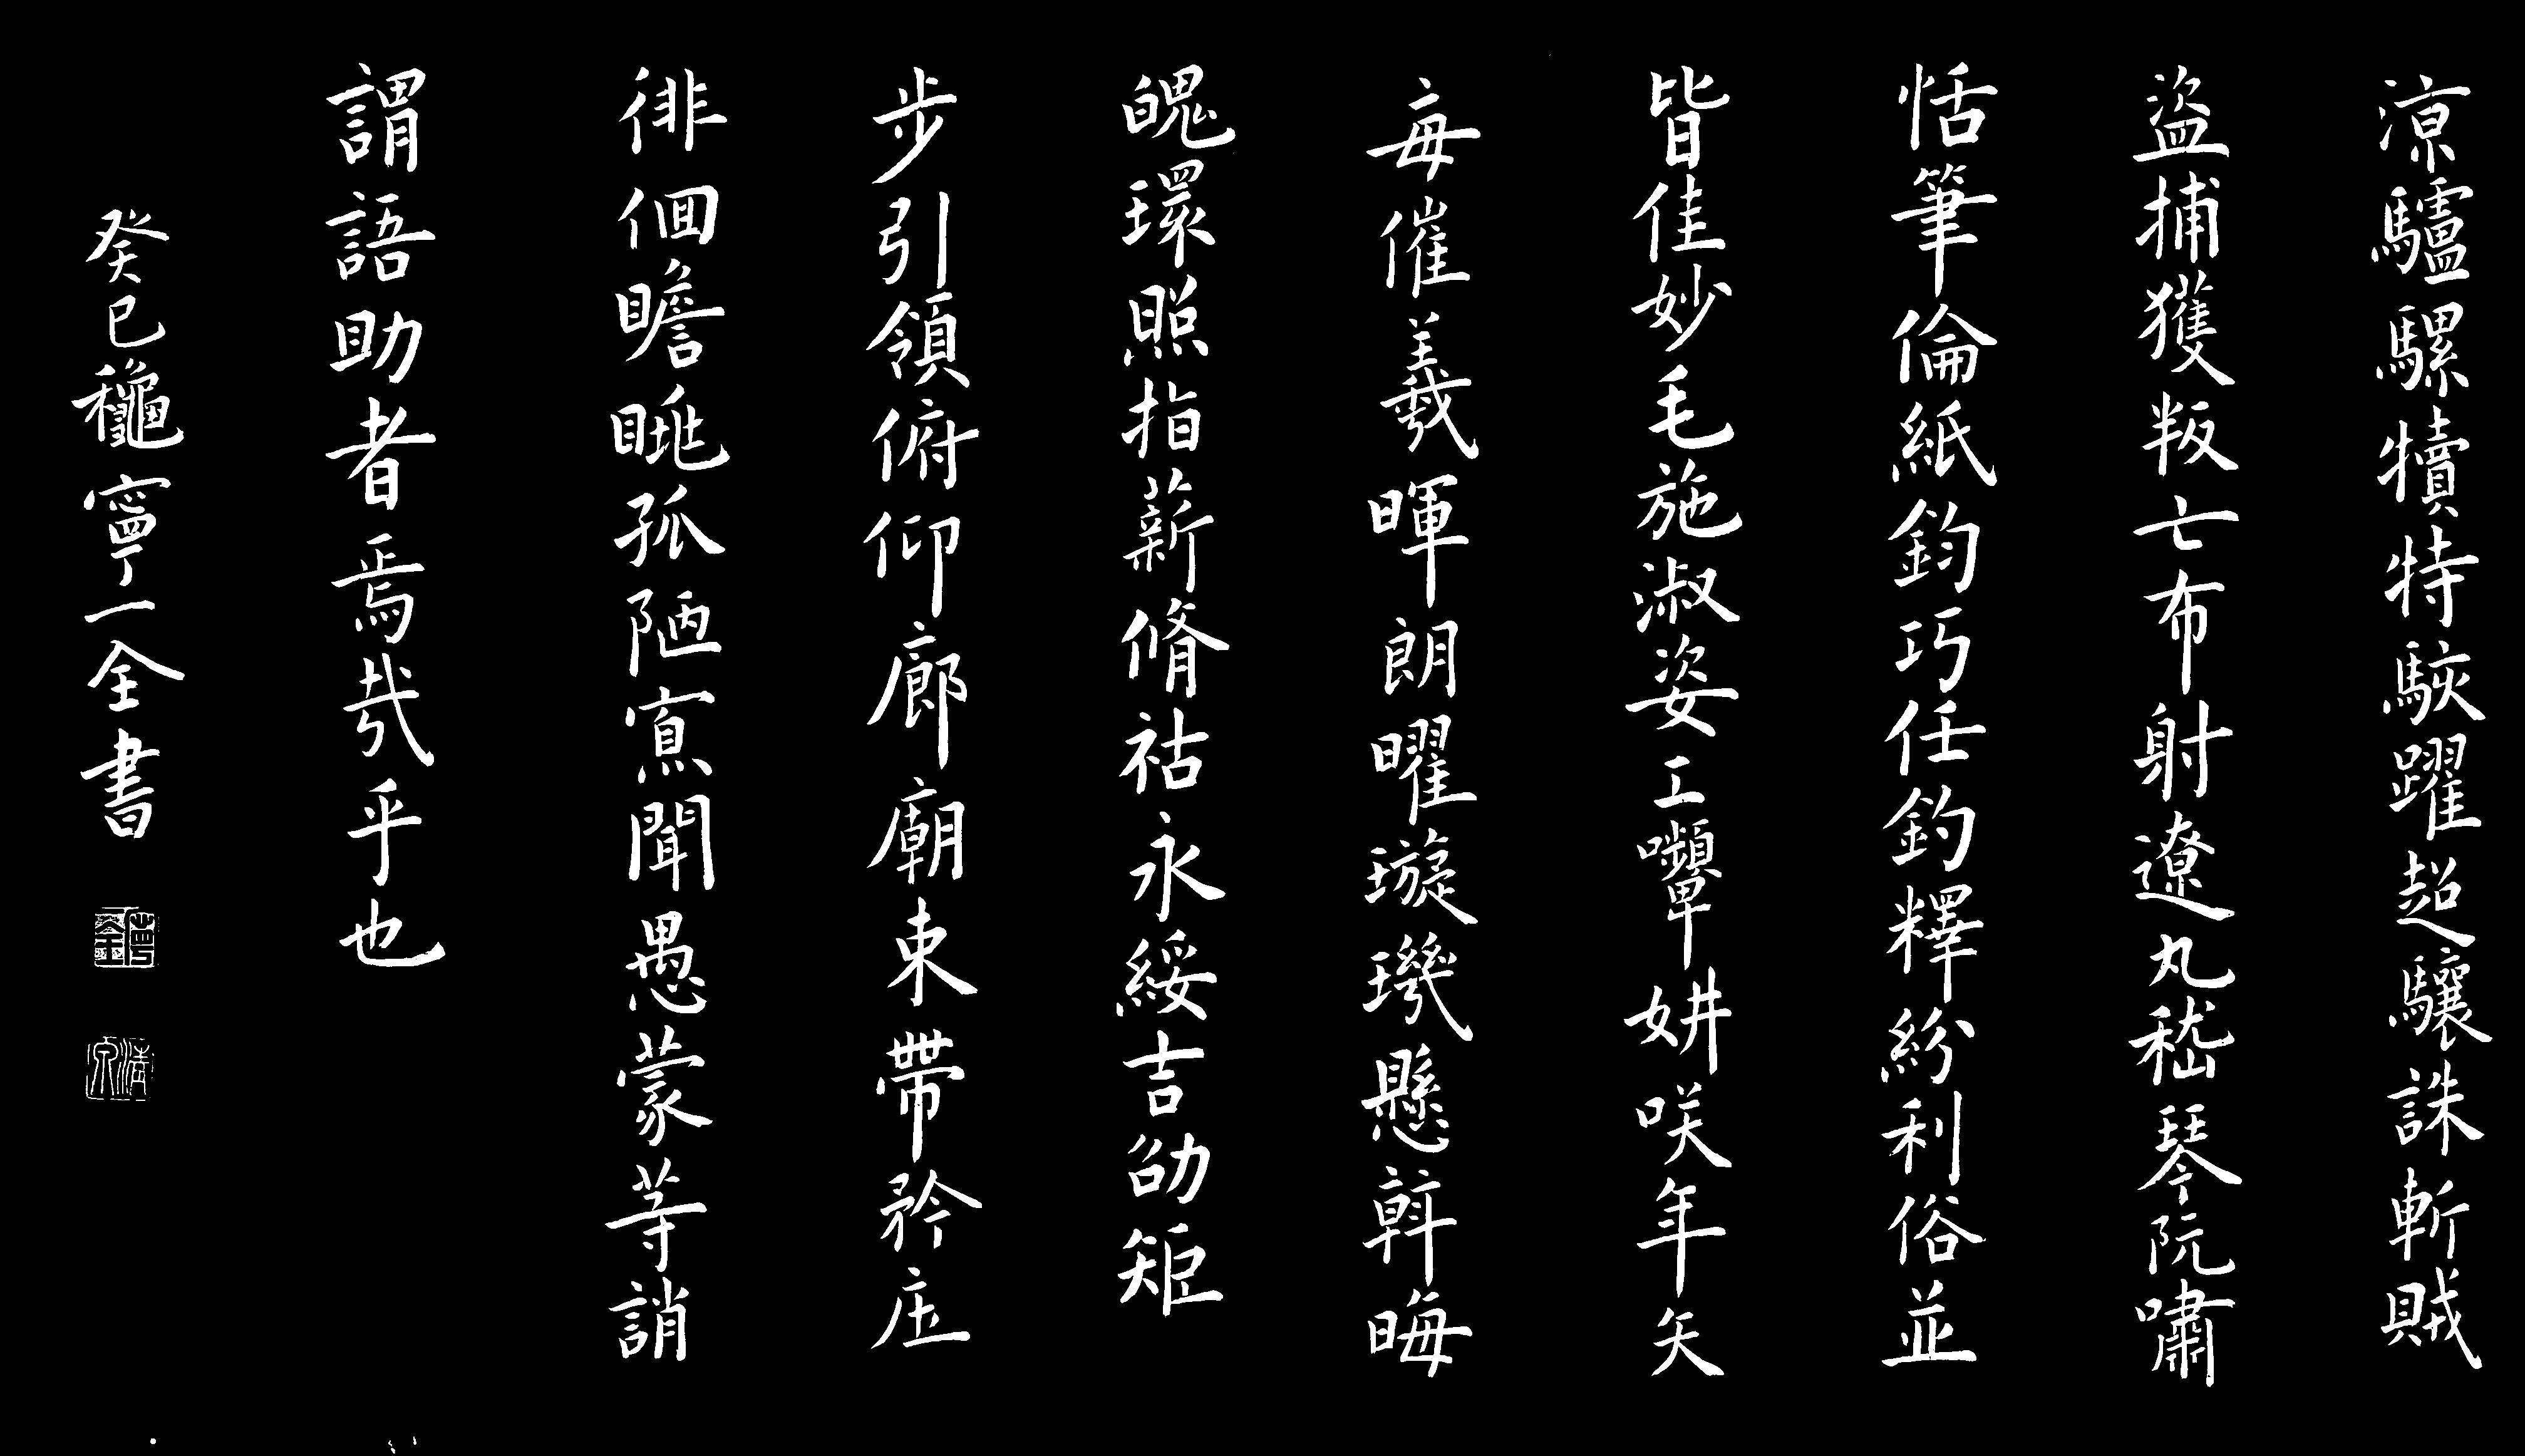 涼驢騾犢特駭躍超驤誅斬賊
盜捕獲叛亡布射遼丸嵇琴阮嘯
恬筆倫紙鈞巧任釣釋紛利俗並
皆佳妙毛施淑姿工顰妍咲年矢
每催羲暉朗曜璇璣懸斡晦
魄環照指薪脩祜永綏吉劭矩
步引領俯仰廊廟束帶矜庄
徘徊瞻眺孤陋寡聞愚蒙等誚
謂語助者焉哉乎也
癸巳龝寧一全書